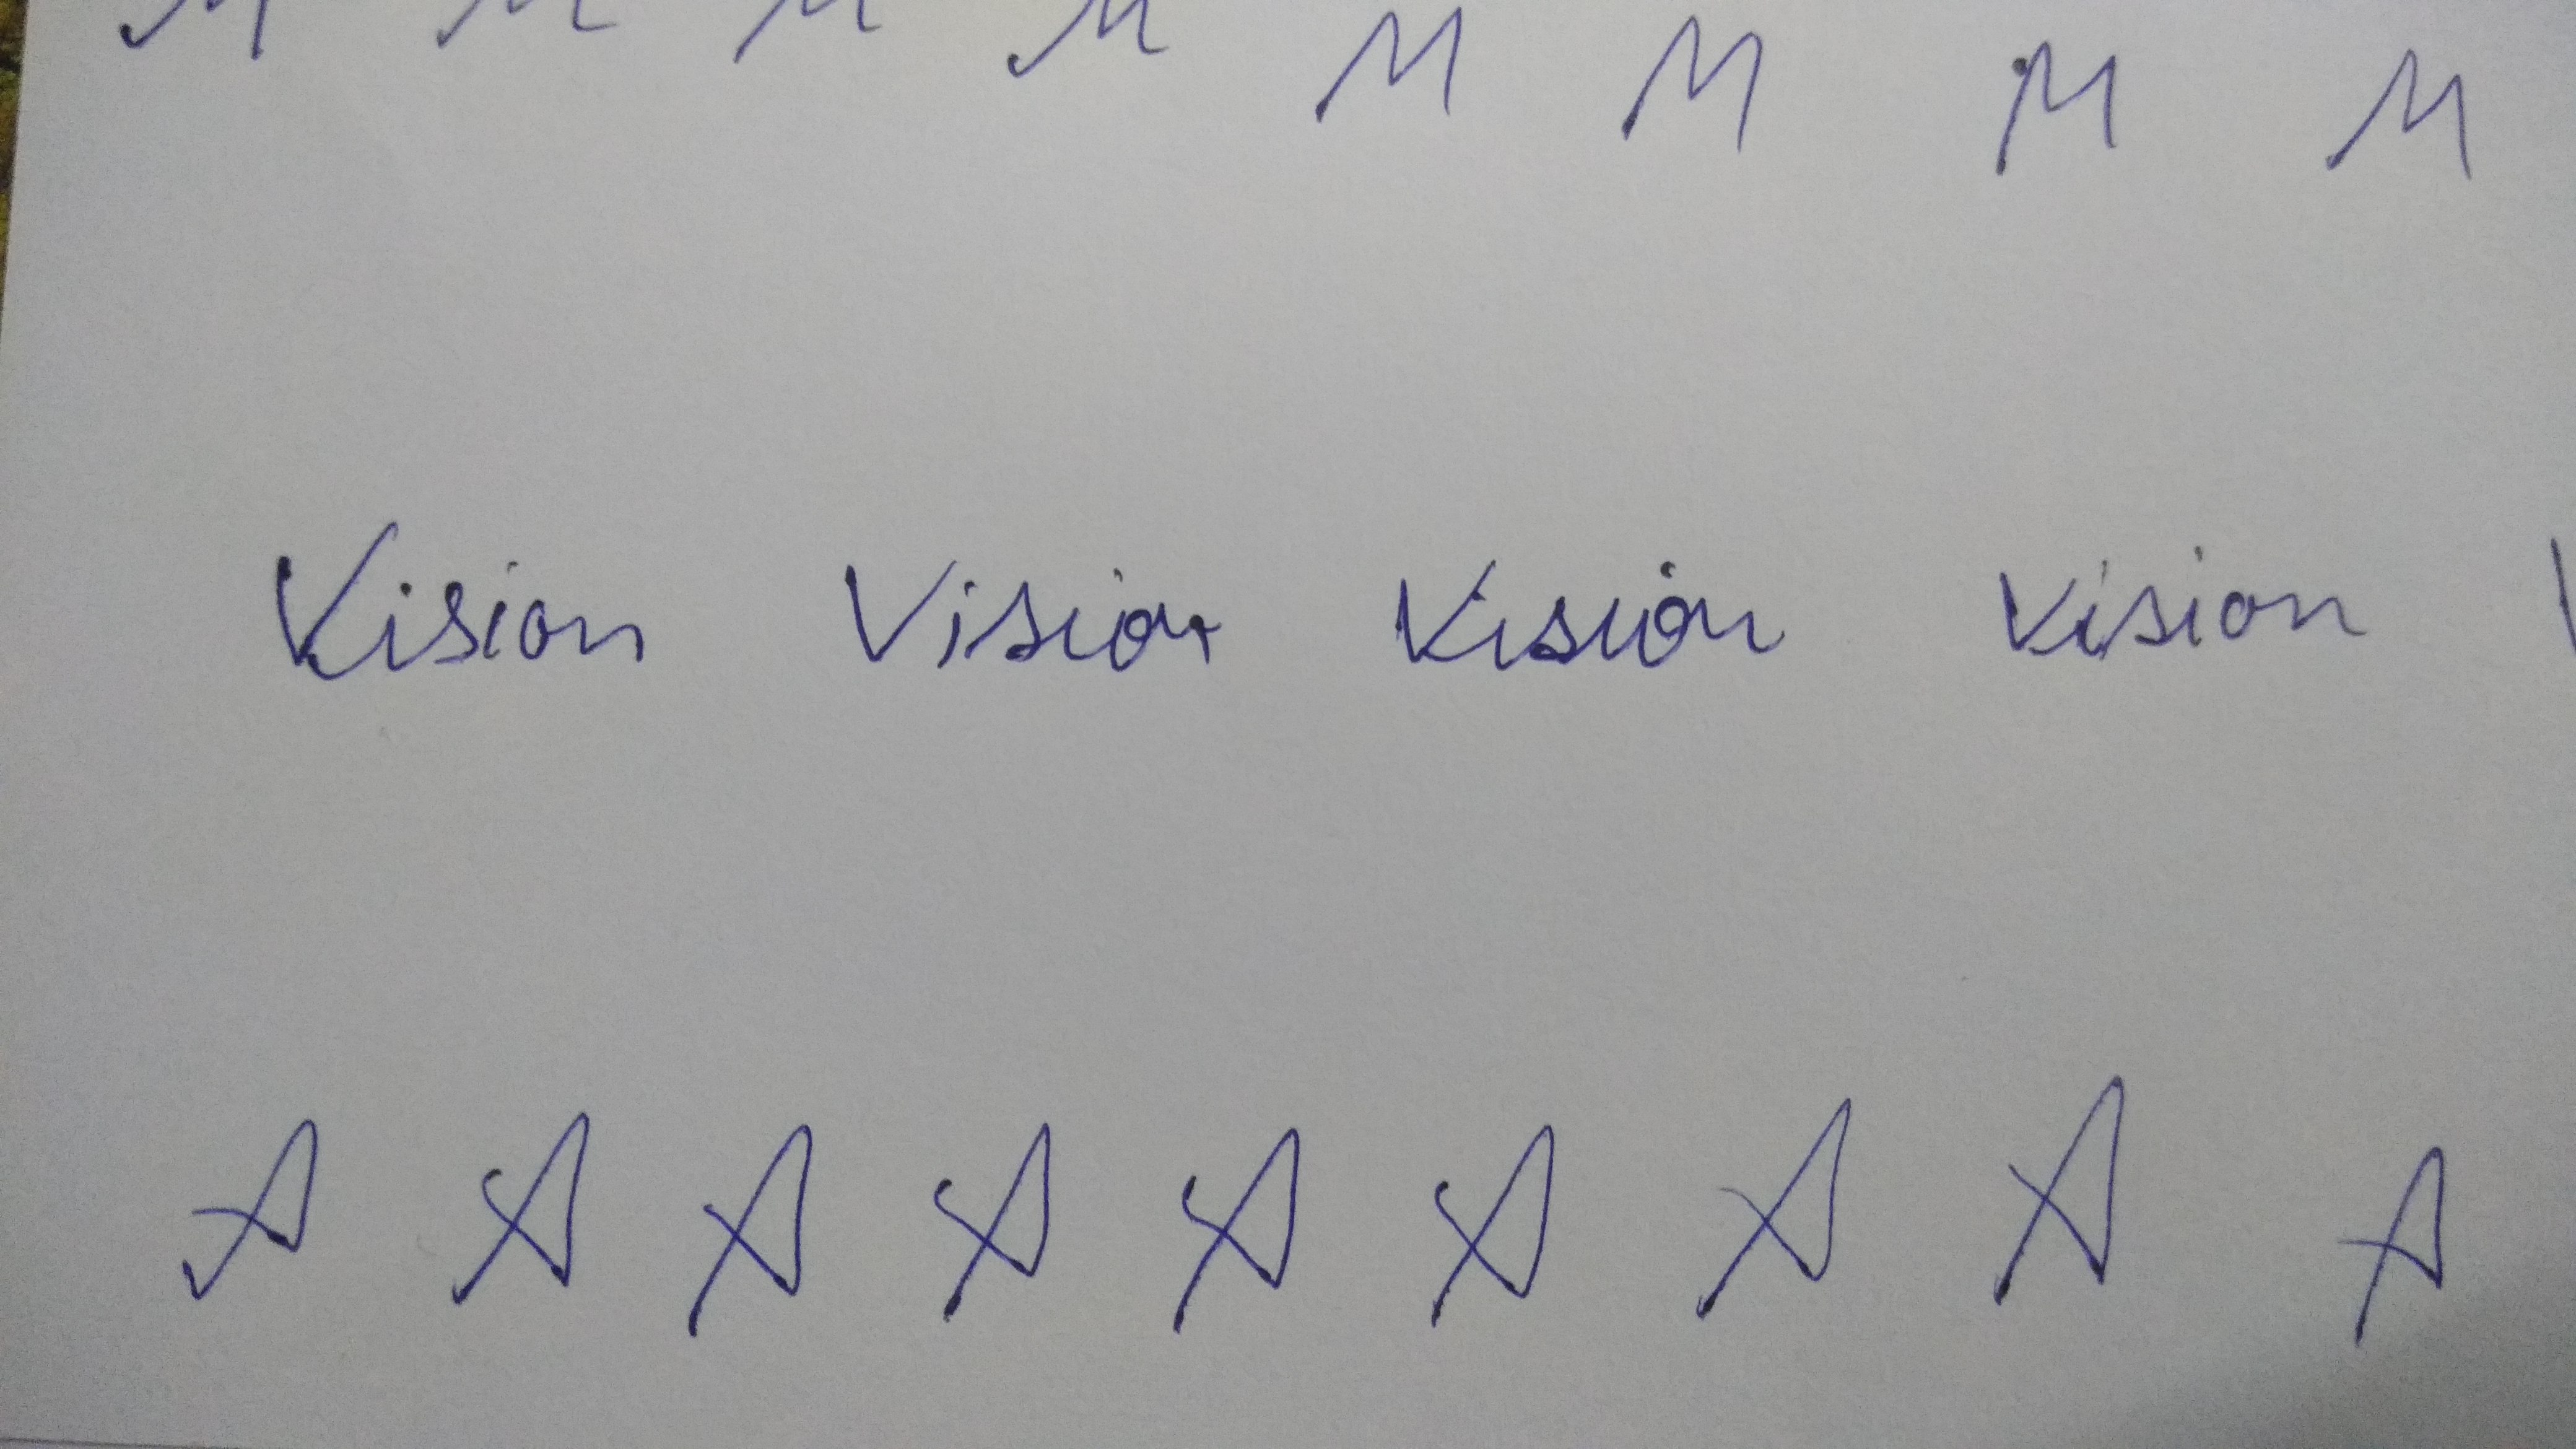 M M M M M M M M
Vision Vision Vision Vision
A A A A A A A A A